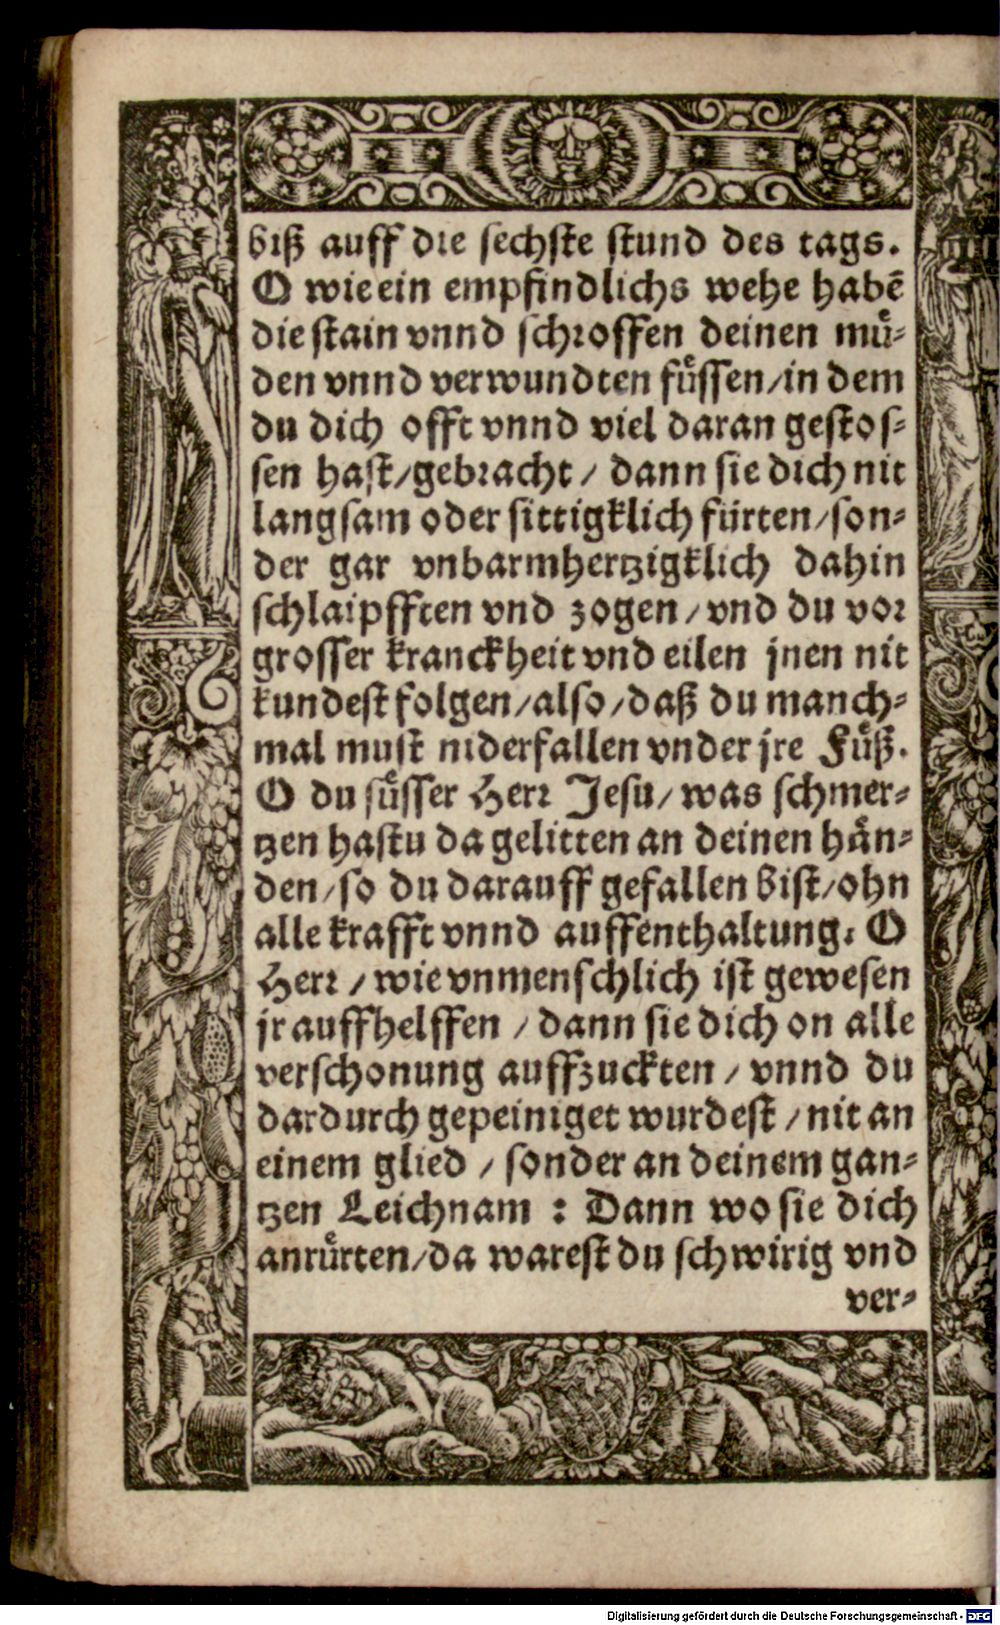 biß auff die sechste stund des tags.
O wie ein empfindlichs wehe habē
die stain vnnd schroffen deinen muͤ-
den vnnd verwundten fuͤssen/in dem
du dich offt vnnd viel daran gestos-
sen hast/gebracht/ dann sie dich nit
langsam oder sittigklich fürten/son-
der gar vnbarmhertzigklich dahin
schlaipfften vnd zogen/vnd du vor
grosser kranckheit vnd eilen jnen nit
kundest folgen/also/daß du manch-
mal must niderfallen vnder jre Fuͤß.
O du suͤsser Herr Jesu/was schmer-
tzen hastu da gelitten an deinen haͤn-
den/so du darauff gefallen bist/ohn
alle krafft vnnd auffenthaltung. O
Herr / wie vnmenschlich ist gewesen
jr auffhelffen / dann sie dich on alle
verschonung auffzuckten / vnnd du
dardurch gepeiniget wurdest / nit an
einem glied / sonder an deinem gan-
tzen Leichnam : Dann wo sie dich
anruͤrten/da warest du schwirig vnd
ver-
Digitalisierung gefördert durch die Deutsche Forschungsgemeinschaft - DFG